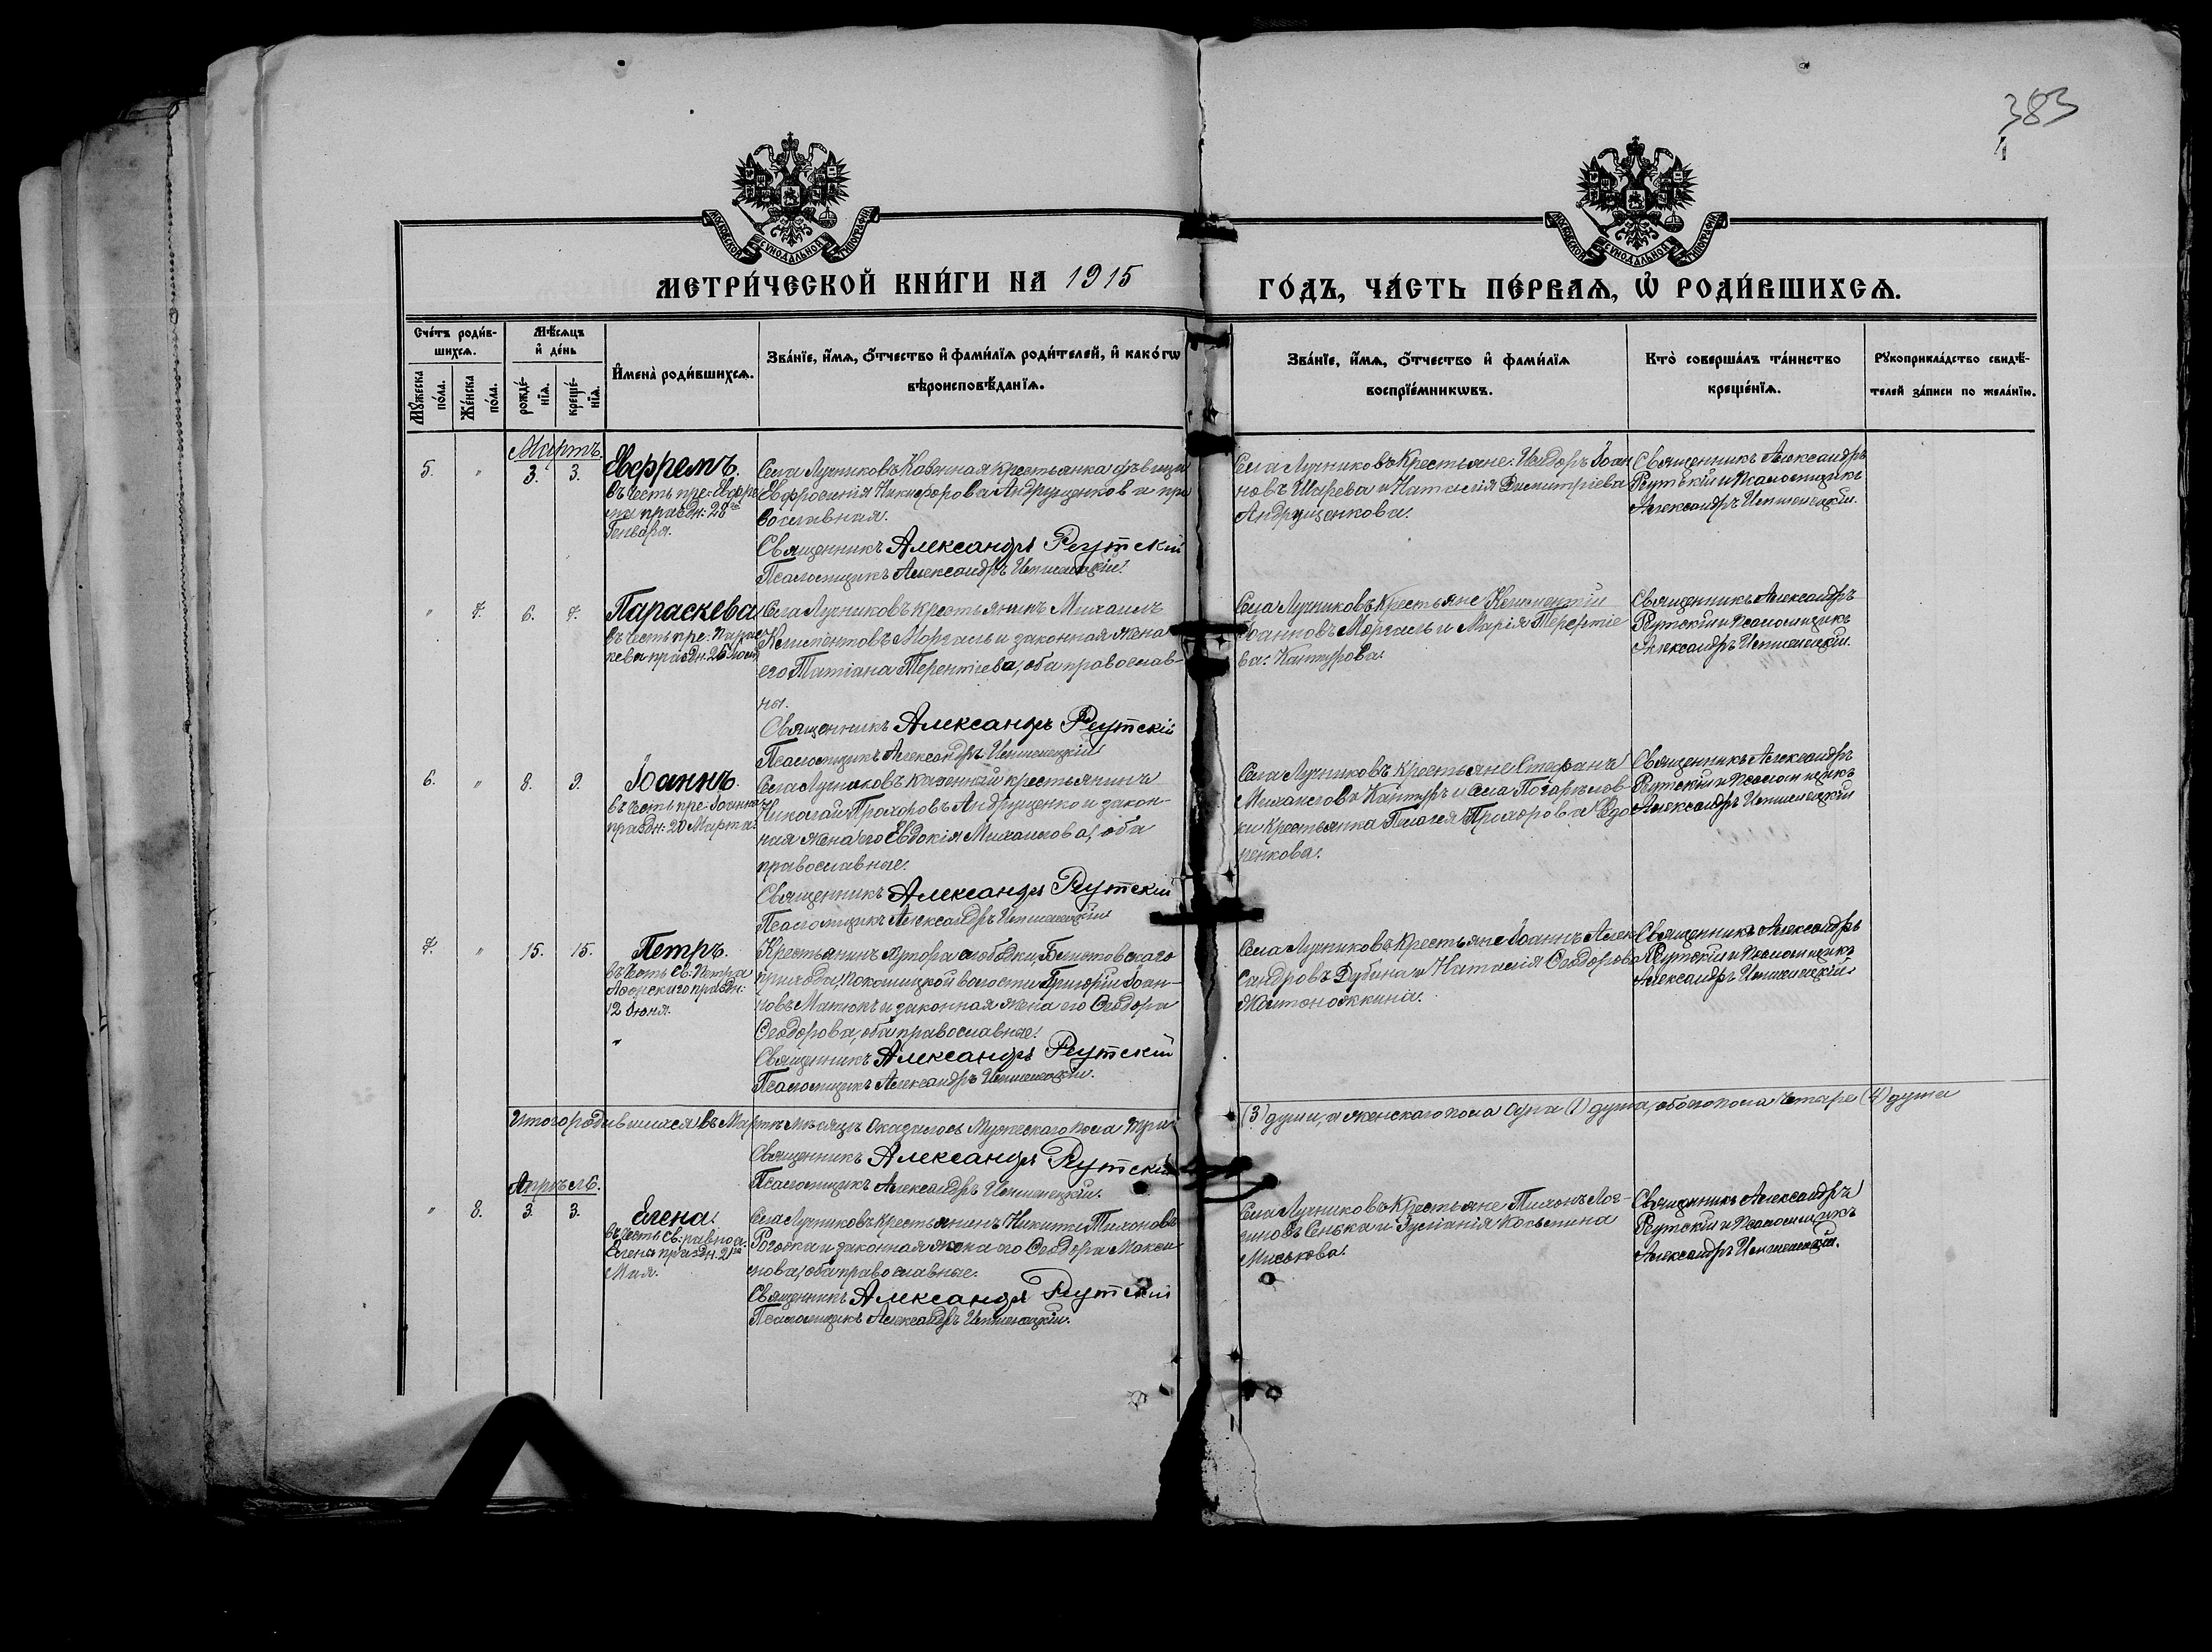 383
4
МОСКОВСКОЙ СѴНОДАЛЬНОЙ ТИПОГРАФІИ
МОСКОВСКОЙ СѴНОДАЛЬНОЙ ТИПОГРАФІИ
МЕТРИ́ЧЕСКОЙ КНИ́ГИ НА 1915
ГО́ДЪ, ЧА́СТЬ ПЕ́РВАѦ, Ѡ҆ РОДИ́ВШИХСѦ.
Сче́тъ роди́в-
шихсѧ.
Мꙋ́жеска
по́ла.
Же́нска
по́ла.
Мѣ́сѧцъ
и҆ де́нь
рожде́-
нїѧ.
креще́-
нїѧ.
И҆мена̀ роди́вшихсѧ.
Зва́нїе, и҆́мѧ, ѻ҆́тчество и҆ фами́лїѧ роди́телей, и҆ како́гѡ
вѣроисповѣ́данїѧ.
Зва́нїе, и҆́мѧ, ѻ҆́тчество и҆ фами́лїѧ
воспрїе́мникѡвъ.
Кто̀ соверша́лъ та́инство
креще́нїѧ.
Рꙋкоприкла́дство свидѣ́-
телей за́писи по жела́нїю.
Мартъ.
5. " 3. 3.
Ефремъ.
въ честь пре: Ефре
ма праздн: 28го
Генваря.
Села Лучниковъ Казенная крестьянка дѣвица
Евфросинія Никифорова Андрущенкова пра
вославная.
Священникъ Александръ Реутскій
Псаломщикъ Александръ
Села Лучниковъ Крестьяне: Исидоръ Іоан
новъ Шарева и Наталія Димитріева
Андрущенкова.
Священникъ Александръ
Реутскій и Псаломщикъ
Александръ
" 7. 6. 7.
Параскева
въ честь пре: Парас
кевы праздн: 26 Іюля
Села Лучниковъ крестьянинъ Михаилъ
Климентовъ Моргаль и законная жена
его Татіана Терентіева, оба православ-
ны.
Священникъ Александръ Реутскій
Псаломщикъ Александръ
Села Лучниковъ Крестьяне Климентій
Іоанновъ Моргаль и Марія Терентіе
ва: Кантурова.
Священникъ Александръ
Реутскій и Псаломщикъ
Александръ
6. " 8. 9.
Іоаннъ.
въ честь пре: Іоанна
праздн: 20 Марта.
Села Лучниковъ казенный крестьянинъ
Николай Прохоровъ Андрущенко и закон-
ная жена его Евдокія Михаилова, оба
православные.
Священникъ Александръ Реутскій
Псаломщикъ Александръ
Села Лучниковъ Крестьяне Стефанъ
Михаиловъ Кантуръ и села Погорѣлов-
ки Крестьянка Пелагея Прохорова Ѳедо
ренкова.
Священникъ Александръ
Реутскій и Псаломщикъ
Александръ
7. " 15. 15.
Петръ.
въ честь Св: Петра
Аѳонскаго праздн:
12 Іюня.
Крестьянинъ хутора слободки,
прихода, Покошицкой волости Григорій Іоан-
новъ Матюкъ и законная жена его Ѳеодора
Ѳеодорова, оба православные.
Священникъ Александръ Реутскій
Псаломщикъ Александръ
Села Лучниковъ Крестьяне Іоаннъ Алек
сандровъ Дубина и Наталія Ѳеодорова
Жолтоножкина.
Священникъ Александръ
Реутскій и Псаломщикъ
Александръ
Итого родившихся въ Мартѣ мѣсяцѣ оказалось Мужескаго пола три
(3) души, а женскаго пола одна (1) душа, обоего пола четыре (4) души
Священникъ Александръ Реутскій
Псаломщикъ Александръ
Апрѣль.
" 8. 3. 3.
Елена.
въ честь св: равноа.
Елены праздн. 21го
Мая.
Села Лучниковъ Крестьянинъ Никита Тихоновъ
и законная жена его Ѳеодора Макси
мова, оба православные.
Священникъ Александръ Реутскій
Псаломщикъ Александръ
Села Лучниковъ Крестьяне Тихонъ Лог-
гиновъ Сенька и Косьмина
Миськова.
Священникъ Александръ
Реутскій и Псаломщикъ
Александръ